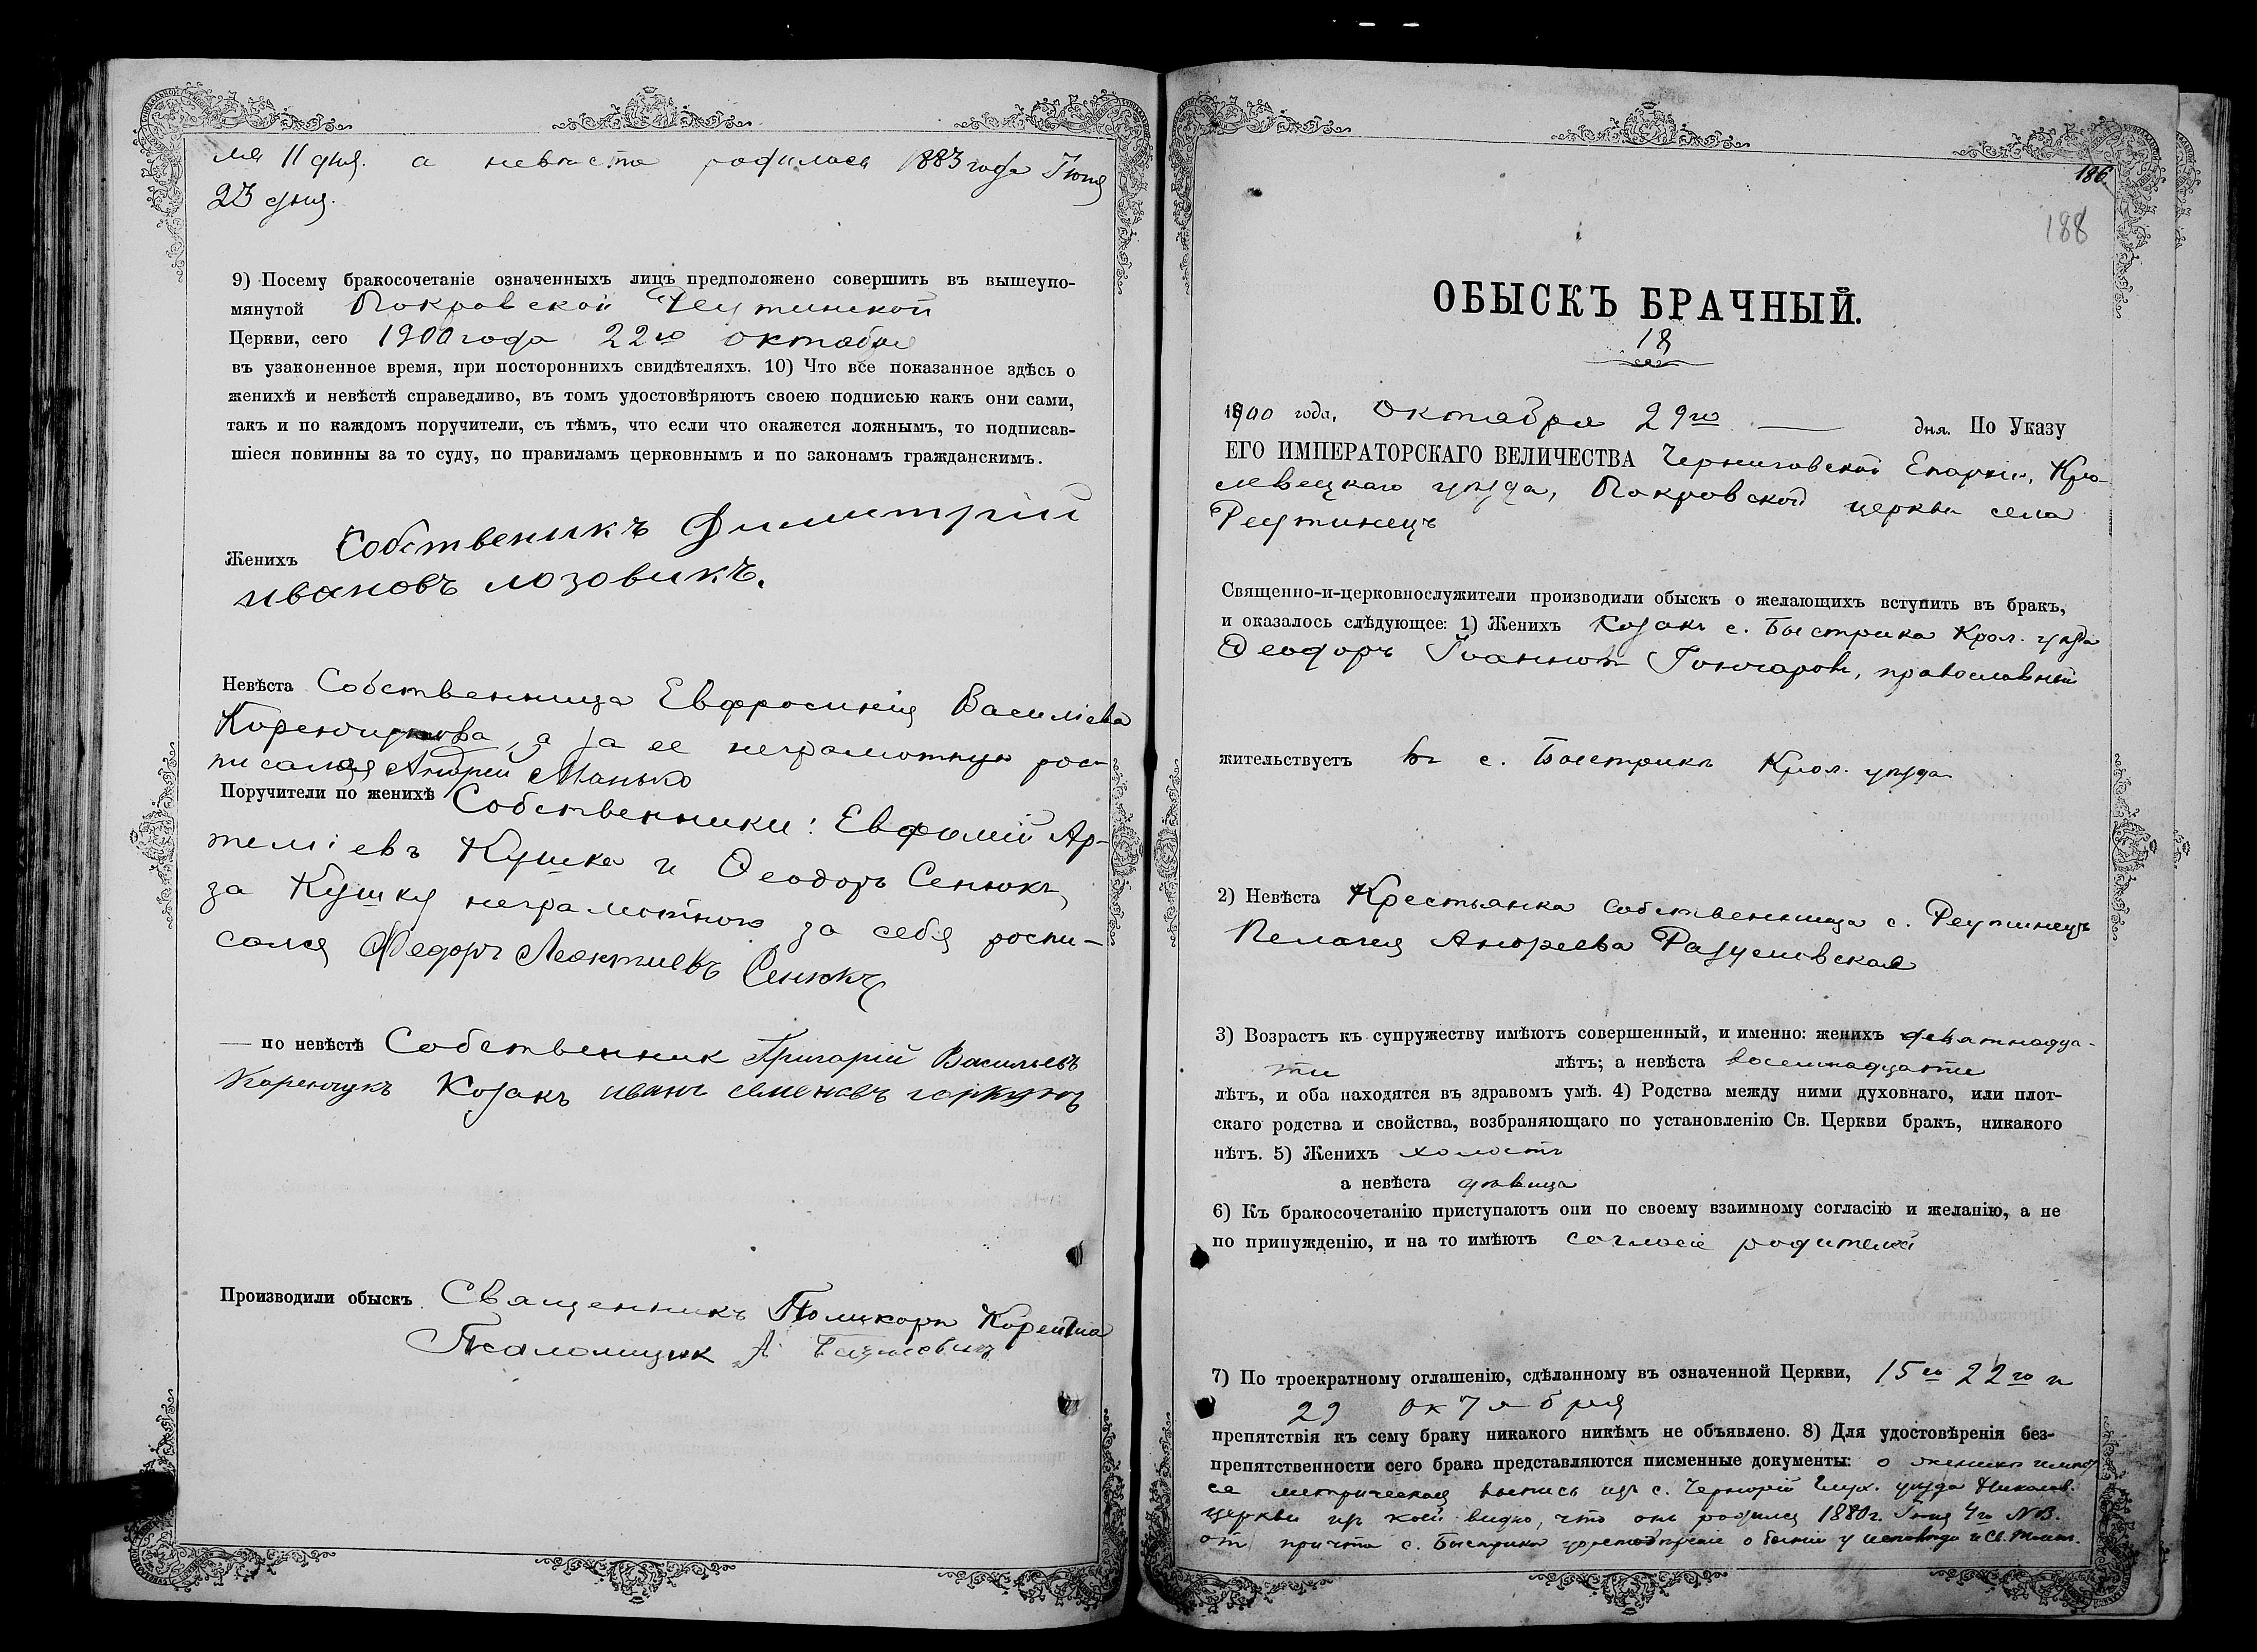 ля 11 дня. а невѣста родилась 1883 года Іюня
23 дня.
9) Посему бракосочетаніе означенныхъ лицъ предположено совершить въ вышеупо-
мянутой Покровской Реутинской
Церкви, сего 1900 года 22го октября
въ узаконенное время, при постороннихъ свидѣтеляхъ. 10) Что все показанное здѣсь о
женихѣ и невѣстѣ справедливо, въ томъ удостовѣряютъ своею подписью какъ они сами,
такъ и по каждомъ поручители, съ тѣмъ, что если что окажется ложнымъ, то подписав-
шіеся повинны за то суду, по правиламъ церковнымъ и по законамъ гражданскимъ.
Женихъ Собственикъ Димитрій
ивановъ лозовикъ.
Невѣста Собственница Евфросинія Василіева
а за ее неграмотную рос-
писался Андрей Манько
Поручители по женихѣ Собственники: Евфимій Ар-
теміевъ Кушка и Ѳеодоръ Сенюкъ,
за Кушку неграмотного за себя роспи-
сался Федоръ Леонтиевъ Сенюкъ
— по невѣстѣ Собственник Григорій Васильевъ
Коренчукъ Козакъ иванъ семеновъ
Производили обыскъ Священникъ Поликарп
Псаломщик А.
186
188
ОБЫСКЪ БРАЧНЫЙ.
18
1900 года, Октября 29го дня. По Указу
ЕГО ИМПЕРАТОРСКАГО ВЕЛИЧЕСТВА Черниговской Епархіи, Кро-
левецкаго уѣзда, Покровской церкви села
Реутинецъ
Священно-и-церковнослужители производили обыскъ о желающихъ вступить въ бракъ,
и оказалось слѣдующее: 1) Женихъ Козакъ с. Быстрика Крол. уѣзда
Ѳеодоръ Іоанновъ Гончаровъ, православный
жительствуетъ въ с. Быстрикѣ Крол. уѣзда
2) Невѣста Крестьянка собственница с. Реутинецъ
Пелагея Андреева Разумовская
3) Возрастъ къ супружеству имѣютъ совершенный, и именно: женихъ девятнадца-
ти лѣтъ; а невѣста восемнадцати
лѣтъ, и оба находятся въ здравомъ умѣ. 4) Родства между ними духовнаго, или плот-
скаго родства и свойства, возбраняющаго по установленію Св. Церкви бракъ, никакого
нѣтъ. 5) Женихъ холостъ
а невѣста дѣвица
6) Къ бракосочетанію приступаютъ они по своему взаимному согласію и желанію, а не
по принужденію, и на то имѣютъ согласіе родителей
7) По троекратному оглашенію, сдѣланному въ означенной Церкви, 15го 22го и
29 октября
препятствія къ сему браку никакого никѣмъ не объявлено. 8) Для удостовѣренія без-
препятственности сего брака представляются писменные документы: о женихѣ имѣет
ся метрическая выпись изъ с. Черторіи Глух. уѣзда Николав.
церкви изъ коей видно, что онъ родился 1880 г. Іюня 4го
от причта с. Быстрика удостовѣреніе о бытіи у исповѣди и Св.